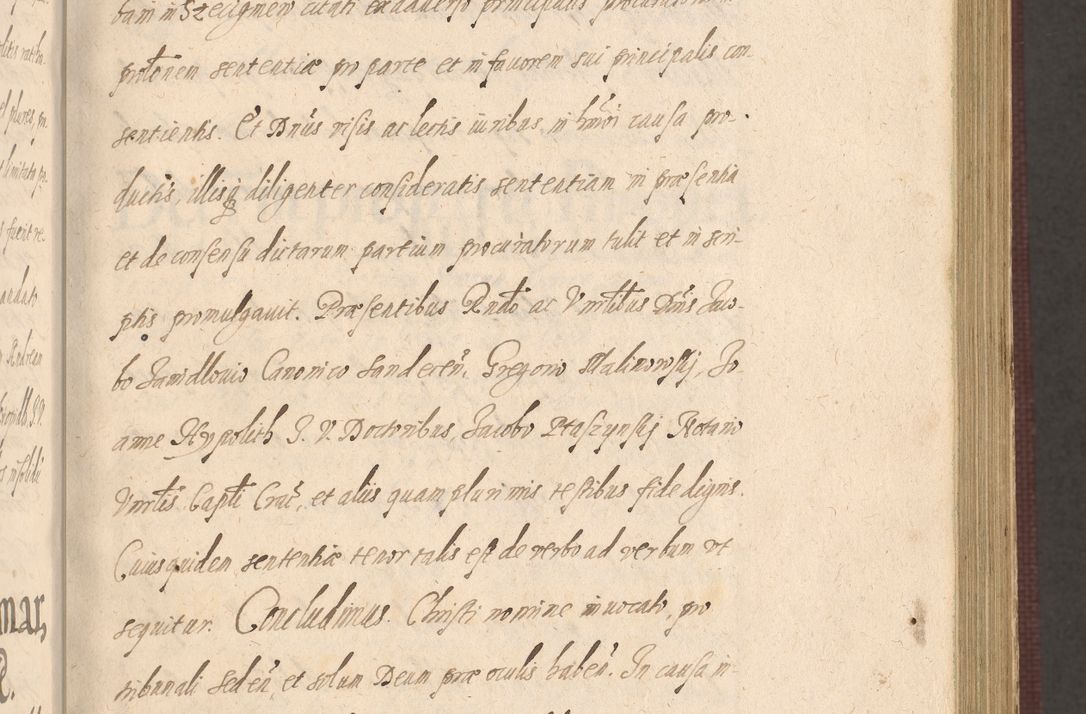 bam in Szecigniew citati ex adverso principalis procuratorem
ptōnem sententiæ pro parte et in favorem sui principalis con-
sentientis. Et Dnūs visis ac lectis iuribus, in hmōi causa pro-
ductis, illisq diligenter consideratis sententiam in præsentia
et de consensu dictarum partium procuratorum tulit et in scri-
ptis promulgavit. Præsentibus Rndo ac Vnrlibus Dnis Jaco-
bo Janidlovio Canonico Sandecen. Gregorio Malinowskij, Jo-
anne Hypolith J. V. Doctoribus, Jacobo Ptaszynskij Notario
Vnrlis Capli Crac, et aliis quam plurimis testibus fide dignis.
Cuiusquidem sententiæ tenor talis est de verbo ad verbum ut
sequitur. Concludimus. Christi nomine invocato, pro
tribunali seden, et solum Deum præ oculis haben. In causa in-
mar,